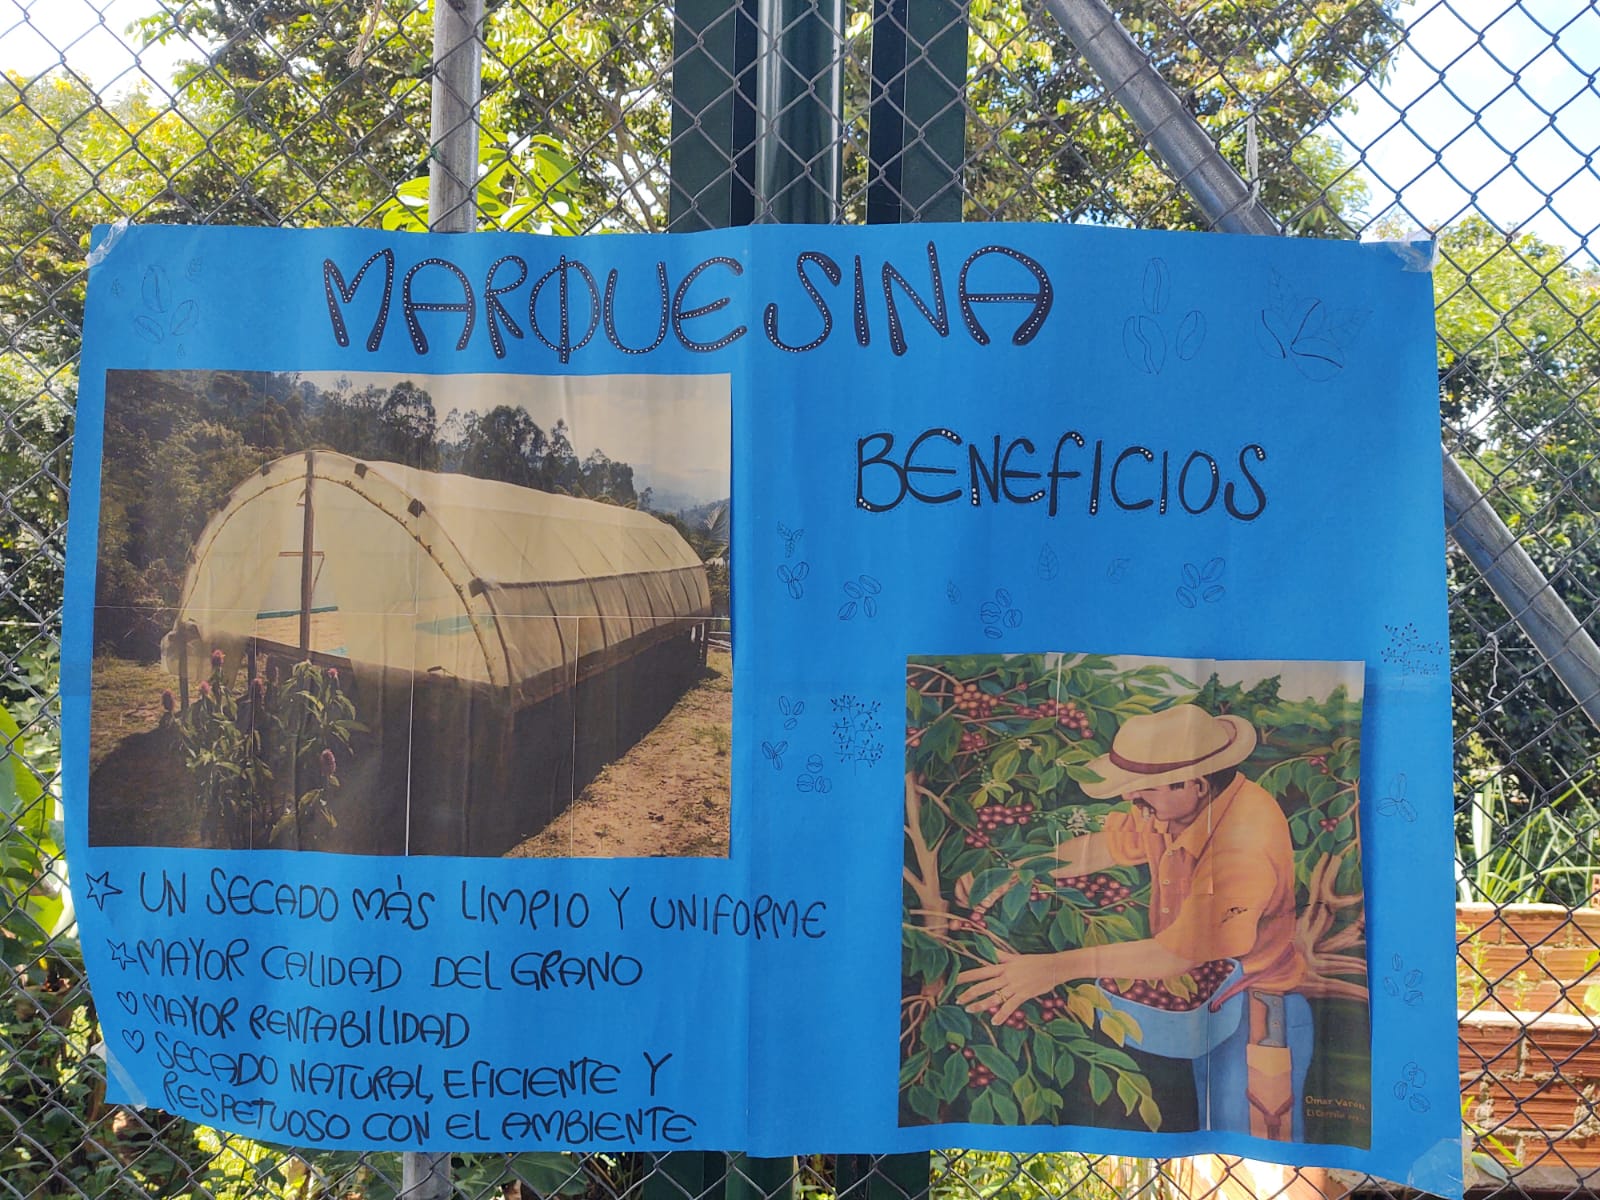 MARQUESINA
BENEFICIOS
UN SECADO MÁS LIMPIO Y UNIFORME
MAYOR CALIDAD DEL GRANO
MAYOR RENTABILIDAD
SECADO NATURAL, EFICIENTE Y
RESPETUOSO CON EL AMBIENTE
Omar Varon